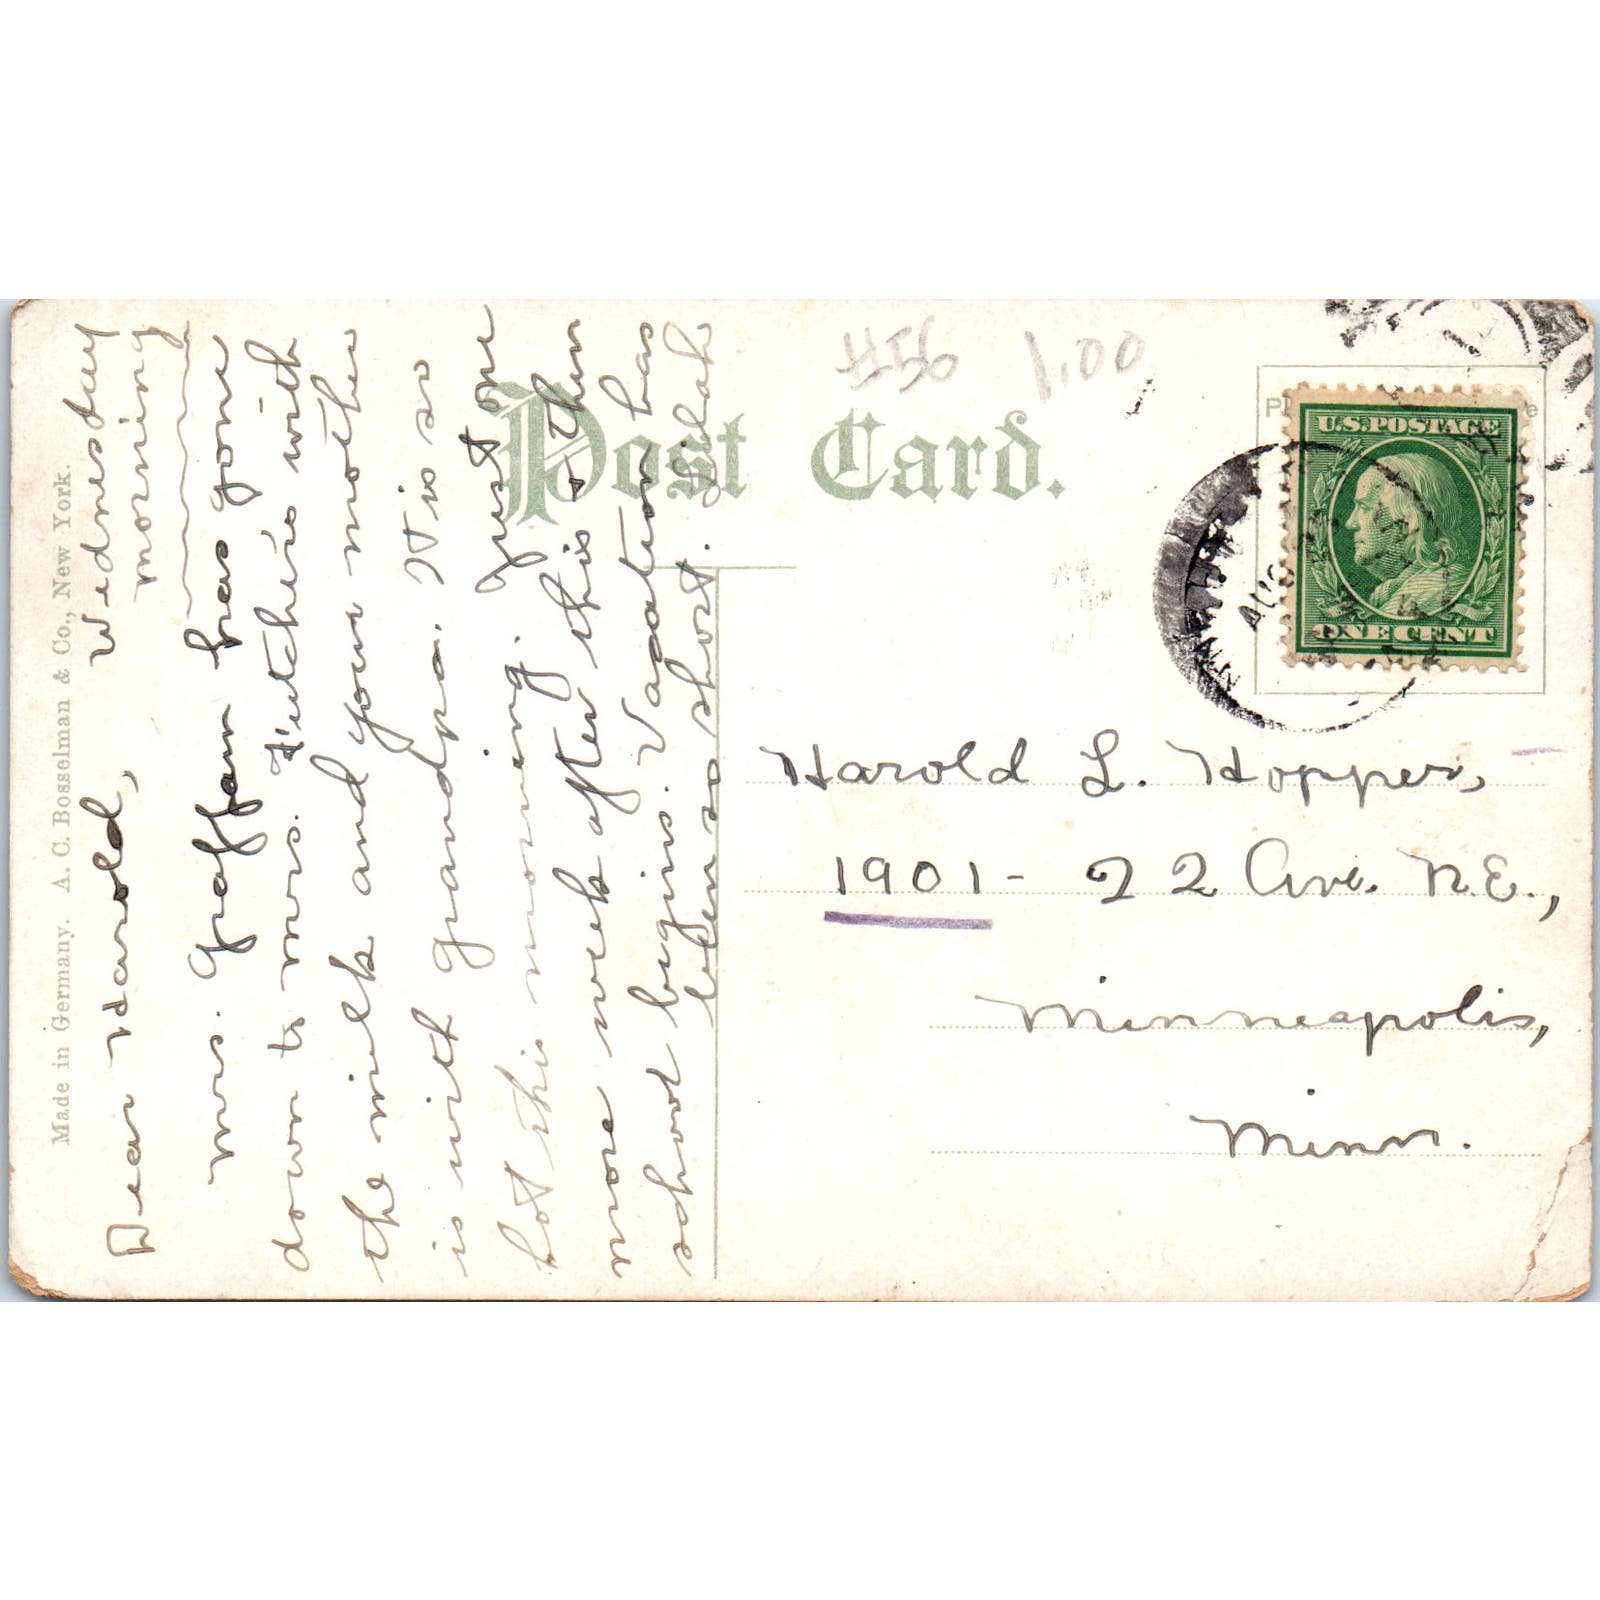 Made in Germany. A. C. Bosselman & Co., New York.
Dear Harold, Wednesday
morning
Mrs. Graffam has gone
down to Mrs. Fletcher's with
the milk and your mother
is with grandpa. It is so
hot this morning. Just one
more week after this & then
school begins. Vacation has
been so short. Lilah
Post Card.
#56 1.00
U.S. POSTAGE
ONE CENT
AUG
Harold L. Hopper,
1901 - 22 Ave. N.E.,
Minneapolis,
Minn.